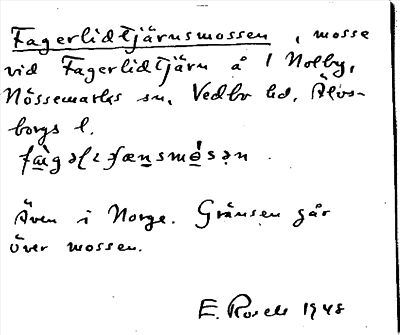 Fagerlidtjärnsmossen, mosse
vid Fagerlidtjärn å 1 Nolby,
Nössemarks sn, Vedbo hd, Älvs-
borgs l.
Även i Norge. Gränsen går
över mossen.
E. Rosell 1948